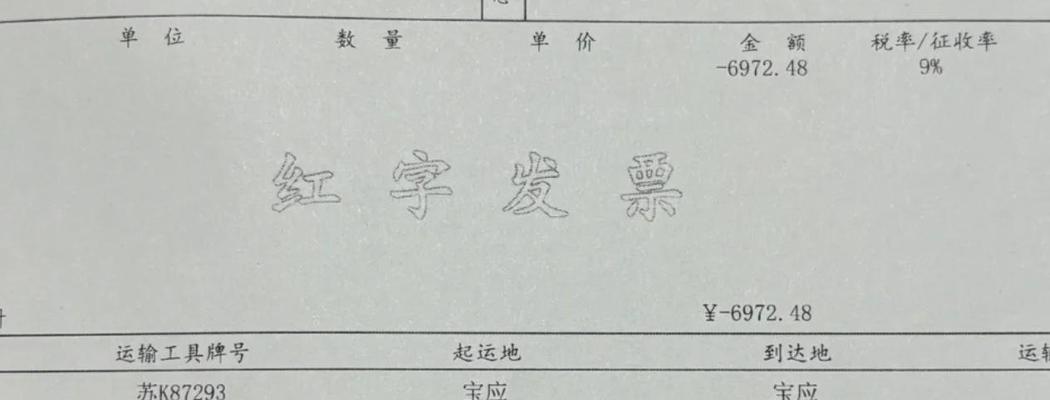 单 位 数 量 单 价 金 额 税率/征收率
-6972.48 9%
红 字 发 票
¥-6972.48
运输工具牌号 起运地 到达地 运
苏K87293 宝应 宝应